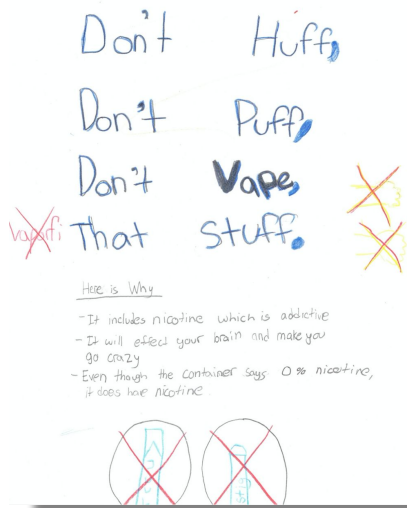 Don't Huff,
Don't Puff,
Don't Vape,
That Stuff.
Here is Why
- It includes nicotine which is addictive
- It will effect your brain and make you
go crazy
- Even though the container says 0% nicotine,
it does have nicotine.